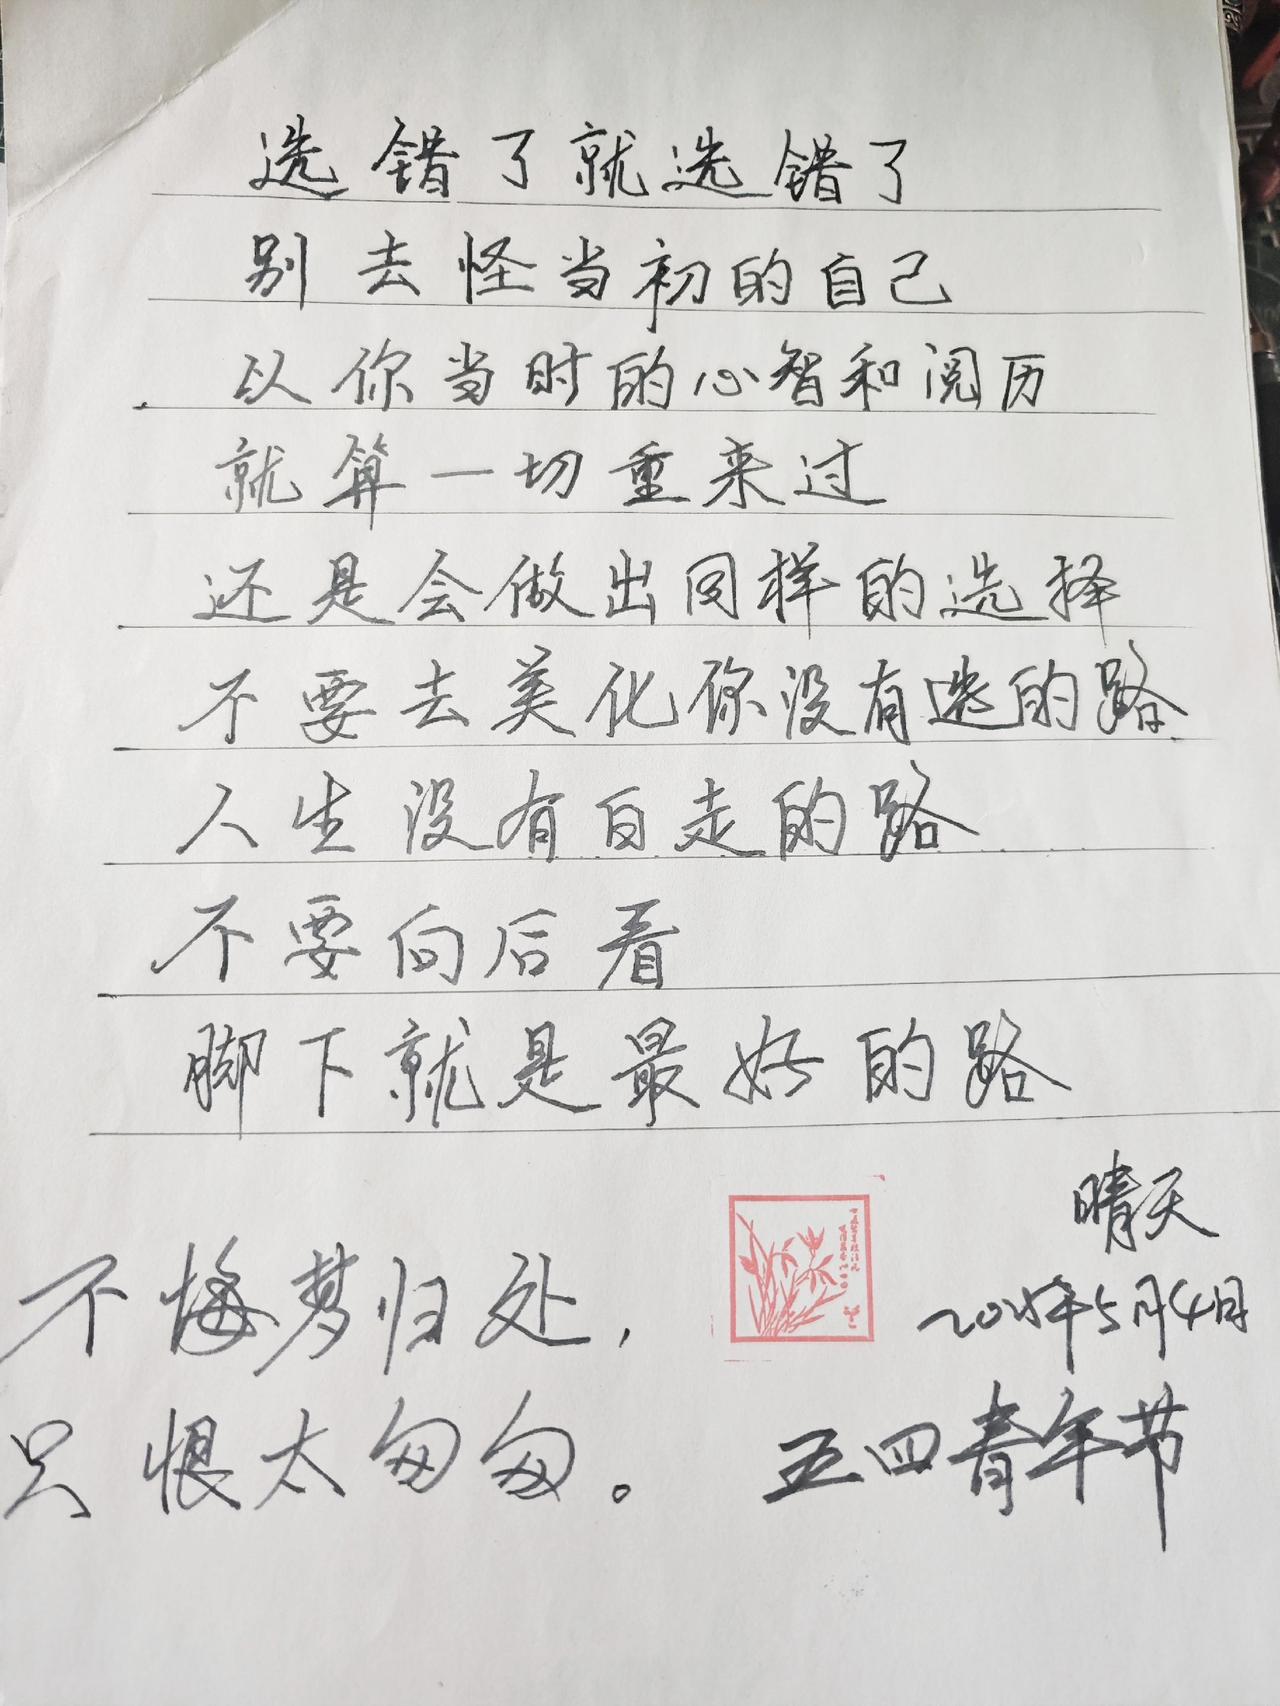 选错了就选错了
别去怪当初的自己
以你当时的心智和阅历
就算一切重来过
还是会做出同样的选择
不要去美化你没有选的路
人生没有白走的路
不要向后看
脚下就是最好的路
晴天
年5月4日
五四青年节
不悔梦归处，
只恨太匆匆。